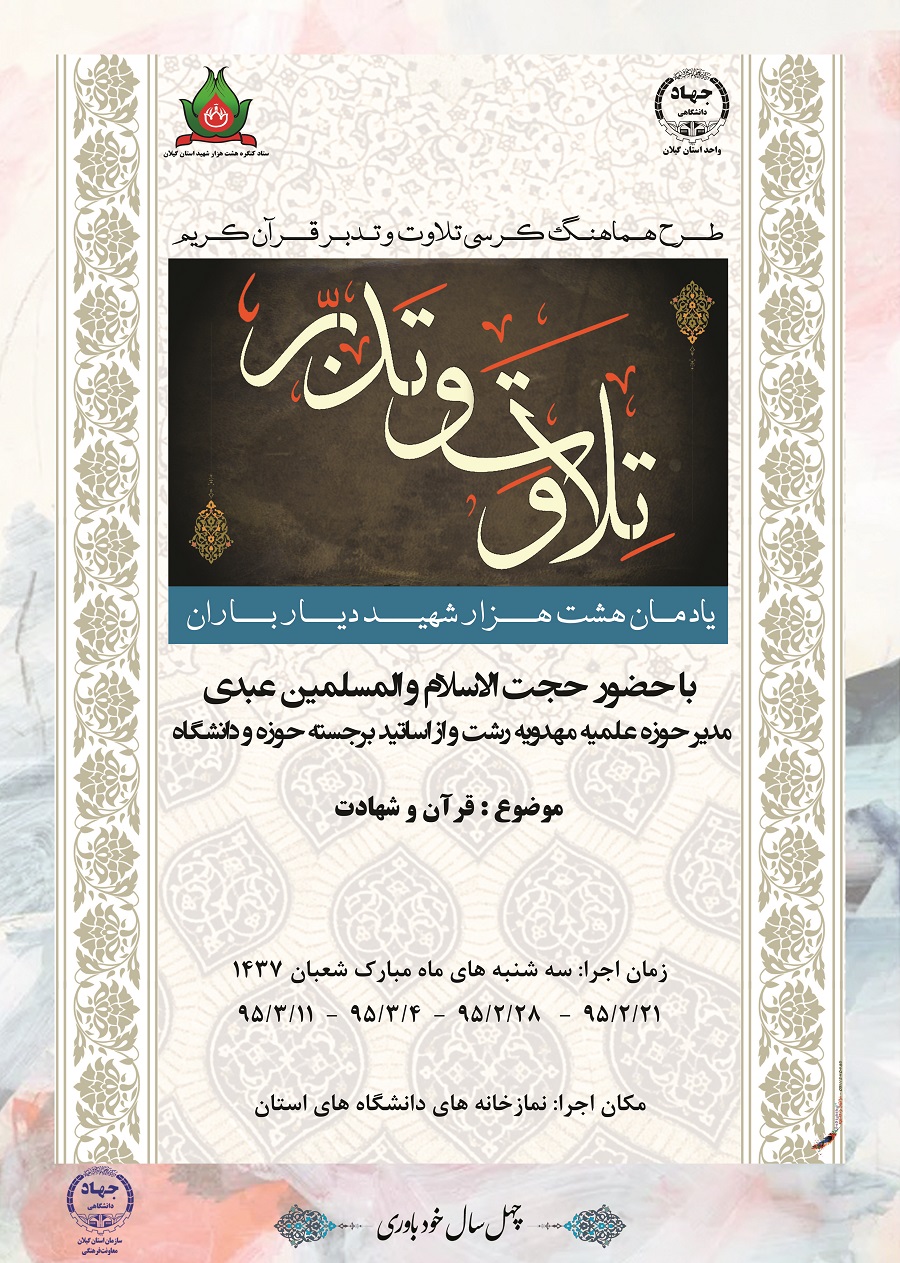 جهاد
دانشگاهی
واحد استان گیلان
ستاد کنگره هشت هزار شهید استان گیلان
طرح هماهنگ کرسی تلاوت و تدبر قرآن کریم
تلاوت و تدبّر
یادمان هشت هزار شهید دیار باران
با حضور حجت الاسلام والمسلمین عبدی
مدیر حوزه علمیه مهدویه رشت و از اساتید برجسته حوزه و دانشگاه
موضوع : قرآن و شهادت
زمان اجرا: سه شنبه های ماه مبارک شعبان ۱۴۳۷
۹۵/۲/۲۱ - ۹۵/۲/۲۸ - ۹۵/۳/۴ - ۹۵/۳/۱۱
مکان اجرا: نمازخانه های دانشگاه های استان
چهل سال خودباوری
جهاد
دانشگاهی
سازمان استان گیلان
معاونت فرهنگی